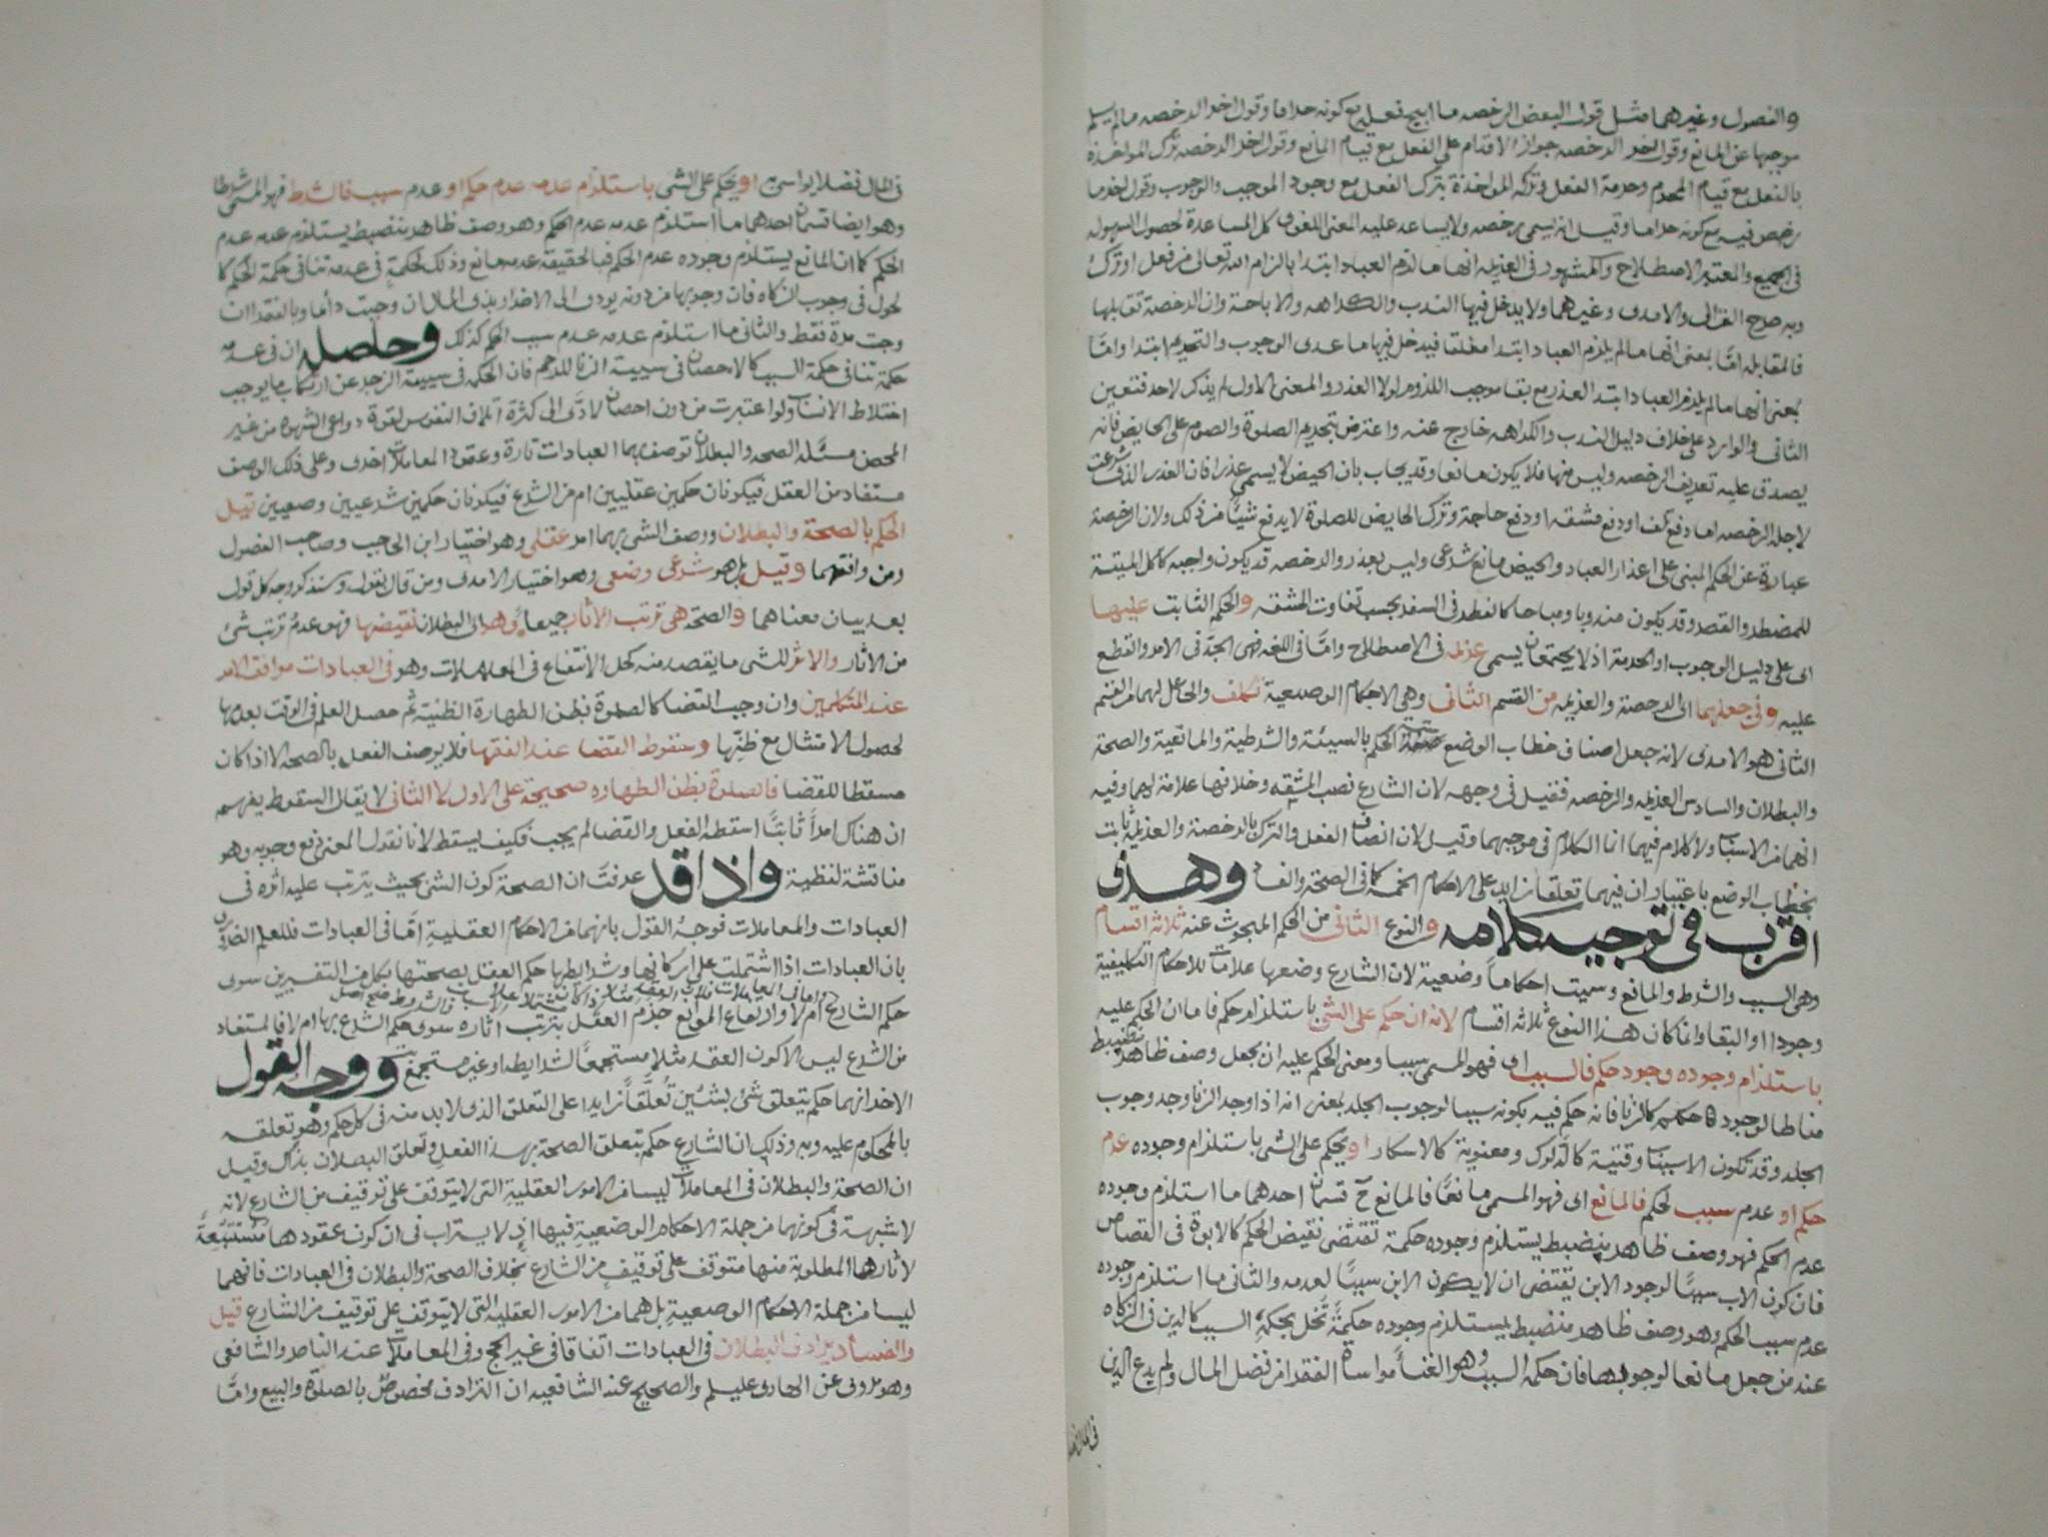 والفصول وغيرهما مثل قول البعض الرخصه ما ابيح فعله مع كونه حراما وقول اخر الرخصه مالم يسلم
موجبها عن المانع وقول اخر الرخصه جواز الاقدام على الفعل مع قيام المانع وقول اخر الرخصه ترك المواخذه
بالفعل مع قيام المحرم وحرمة الفعل وترك المواخذة بترك الفعل مع وجود الموجب والوجوب وقول اخر ما
رخص فيه مع كونه حراما وقيل انه يسمى رخصه ولا يساعد عليه المعنى اللغوى كل المساعدة لحصول السهوله
فى الجميع والمعتبر الاصطلاح والمشهور فى العزيمه انها ما لزم العباد ابتدا بالزام الله تعالى من فعل او ترك
وبه صرح الغزالى والامدى وغيرهما ولا يدخل فيها الندب والكراهه والاباحة وان الرخصة تقابلها
فالمقابله امّا بمعنى انها مالم يلزم العباد ابتدا مطلقا فيدخل فيها ما عدى الوجوب والتحريم ابتدا وامّا
بمعنى انها مالم يلزم العباد ابتدا لعذر مع بقا موجب اللزوم لولا العذر والمعنى الاول لم يذكر لاحد فتعين
الثانى والوارد على خلاف دليل الندب والكراهه خارج عنه واعترض بتحريم الصلوة والصوم على الحايض فانه
يصدق عليه تعريف الرخصه وليس منها فلا يكون مانعا وقد يجاب بان الحيض لا يسمى عذرا فان العذر الذى شرعت
لاجله الرخصه اما دفع تلف او دفع مشقه او دفع حاجة وترك الحايض للصلوة لا يدفع شيئًا من ذلك ولان الرخصة
عبارة عن الحكم المبنى على اعذار العباد والحيض مانع شرعى وليس بعذر والرخصه قد يكون واجبه كاكل الميتة
للمضطر والقصر وقد يكون مندوبا ومباحا كالفطر فى السفر بحسب تفاوت المشقه والحكم الثابت عليهما
اى على دليل الوجوب او الحرمة اذ لا يجتمعان يسمى عزيمه فى الاصطلاح وامّا فى اللغه فهى الجدّ فى الامر والقطع
عليه وفى جعلهما اى الرخصة والعزيمه من القسم الثانى وهى الاحكام الوضعية تكلف والجاعل لهما من القسم
الثانى هو الامدى لانه جعل اصناف خطاب الوضع الحكم بالسببية والشرطية والمانعية والصحة
والبطلان والسادس العزيمه والرخصه فقيل فى وجهه لان الشارع نصب المشقه وخلافها علامة لهما وفيه
انهما من الاسباب ولا كلام فيهما انما الكلام فى موجبهما وقيل لان اتصاف الفعل والترك بالرخصة والعزيمة ثابت
بخطاب الوضع باعتبار ان فيهما تعلقا زايدا على الاحكام الخمسة كما فى الصحة والفساد وهذى
اقرب فى توجيه كلامه والنوع الثانى من الحكم المبحوث عنه ثلاثة اقسام
وهى السبب والشرط والمانع وسميت احكاماً وضعية لان الشارع وضعها علامات للاحكام التكليفية
وجودا او انتفا وانما كان هذا النوع ثلاثة اقسام لانه ان حكم على الشى باستلزام حكم فاما ان الحكم عليه
باستلزام وجوده وجود حكم فالسبب اى فهو المسمى سببا ومعنى الحكم عليه ان يجعل وصف ظاهر منضبط
مناطا لوجود حكم كالزنا فانه حكم فيه بكونه سببا لوجوب الجلد بمعنى انه اذا وجد الزنا وجد وجوب
الجلد وقد تكون الاسباب وقتية كالدلوك ومعنوية كالاسكار او يحكم على الشى باستلزام وجوده عدم
حكم او عدم سبب لحكم فالمانع اى فهو المسمى مانعًا فالمانع ح قسمان احدهما ما استلزم وجوده
عدم الحكم فهو وصف ظاهر منضبط يستلزم وجوده حكمة تقتضى نقيض الحكم كالابوة فى القصاص
فان كون الاب سببًا لوجود الابن يقتضى ان لا يكون الابن سببًا لعدمه والثانى ما استلزم وجوده
عدم سبب الحكم وهو وصف ظاهر منضبط يستلزم وجوده حكمةً تخل بحكمة السبب كالدين فى الزكاه
عند من جعل مانعا لوجوبها فان حكمة السبب وهو الغنا مواساة الفقرا من فضل المال ولم يدع الدين
فى المال فضلا
فى المال فضلا يواسى به او يحكم على الشى باستلزام عدمه عدم حكم او عدم سبب فالشرط فهو المسمى شرطا
وهو ايضا قسمان احدهما ما استلزم عدمه عدم الحكم وهو وصف ظاهر منضبط يستلزم عدمه عدم
الحكم كما ان المانع يستلزم وجوده عدم الحكم فبالحقيقة عدمه مانع وذلك لحكمة فى عدمه تنافى حكمة الحكم كا
لحول فى وجوب الزكاه فان وجوبها من دونه يودى الى الاضرار بذى المال ان وجبت دائما وبالفقرا ان
وجبت مرة فقط والثانى ما استلزم عدمه عدم سبب الحكم كذلك وحاصله ان فى عدمه
حكمة تنافى حكمة السبب كالاحصان فى سببية الزنا للرجم فان الحكمه فى سببيته الزجر عن ارتكاب ما يوجب
اختلاط الانساب ولو اعتبرت من دون احصان لادّى الى كثرة اتلاف النفوس لقوة دواعى الشهوه من غير
المحصن مسئله الصحه والبطلان توصف بهما العبادات تارة وعقود المعاملات اخرى وعلى ذلك الوصف
مستفاد من العقل فيكونان حكمين عقليين ام من الشرع فيكونان حكمين شرعيين وضعيين قيل
الحكم بالصحة والبطلان ووصف الشى بهما امر عقلى وهو اختيار ابن الحاجب وصاحب الفصول
ومن وافقهما وقيل بل هو شرعى وضعى وهو اختيار الامدى ومن قال بقوله وسنذكر وجه كل قول
بعد بيان معناهما والصحه هى ترتب الاثار جميعاً وهو اى البطلان نقيضها فهو عدمُ ترتب شئ
من الاثار والاثر للشى ما يقصد منه كحل الانتفاع فى المعاملات وهو فى العبادات موافقة الامر
عند المتكلمين وان وجب القضا كالصلوة بظن الطهارة الظنية ثم حصل العلم فى الوقت بعدمها
لحصول الامتثال مع ظنّها وسقوط القضا عند الفقها فلا يوصف الفعل بالصحه الا اذا كان
مسقطا للقضا فالصلوة بظن الطهاره صحيحة على الاول لا الثانى لا يقال السقوط يفهم
ان هناك امراً ثابتًا اسقطه الفعل والقضا لم يجب فكيف يسقط لانا نقول المعنى رفع وجوبه وهو
مناقشة لفظية واذا قد عرفتَ ان الصحة كون الشى بحيث يترتب عليه اثره فى
العبادات والمعاملات فوجهُ القول بانهما من الاحكام العقلية امّا فى العبادات فللعلم الضرورى
بان العبادات اذا اشتملت على اركانها وشرائطها حكم العقل بصحتها بكل من التفسيرين سوى
حكم الشارع بها ام لا واما فى المعاملات فلان العقد مثلا اذا كان مشتملا على الاسباب والشروط
وارتفاع الموانع جزم العقل بترتب اثاره سوى حكم الشرع بها ام لا فالمستفاد
من الشرع ليس الا كون العقد مثلا مستجمعًا لشرايطه او غير مستجمع ووجه القول
الاخر انهما حكم يتعلق شئ بشئين تعلّقاً زايدا على التعلق الذى لا بد منه فى كل حكم وهو تعلقه
بالمحكوم عليه وبه وذلك ان الشارع حكم بتعلق الصحة بهذا الفعل وتعلق البطلان بذاك وقيل
ان الصحة والبطلان فى المعاملات ليسا من الامور العقلية التى لا يتوقف على توقيف من الشارع لانه
لا شبهة فى كونهما من جملة الاحكام الوضعية فيها اذ لا يستراب فى ان كون عقودها مستتبعةً
لاثارها المطلوبة منها متوقف على توقيف من الشارع بخلاف الصحة والبطلان فى العبادات فانهما
ليسا من جملة الاحكام الوضعية بل هما من الامور العقليه التى لا يتوقف على توقيف من الشارع قيل
والفساد يرادف البطلان فى العبادات اتفاقا فى غير الحج وفى المعاملات عند الناصر والشافعى
وهو مروى عن الهادى عليلم والصحيح عند الشافعيه ان الترادف مخصوصٌ بالصلوة والبيع وامّا